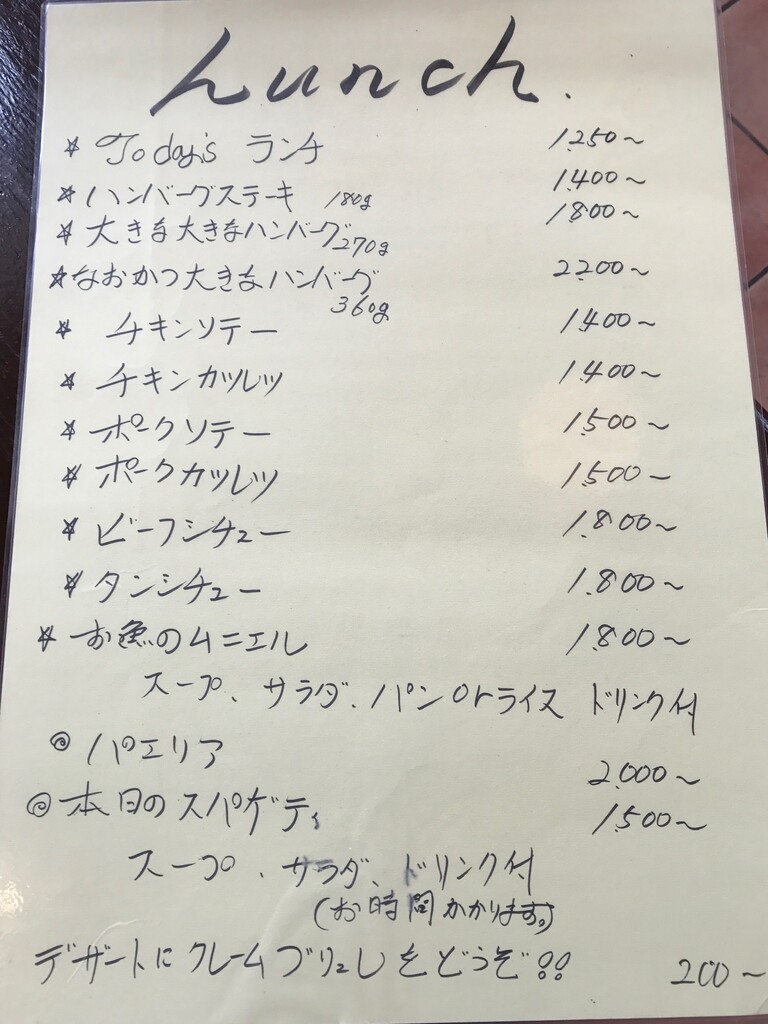 Lunch.
☆ Today's ランチ 1.250～
☆ ハンバーグステーキ 180g 1.400～
☆ 大きな大きなハンバーグ 270g 1.800～
☆ なおかつ大きなハンバーグ 360g 2.200～
☆ チキンソテー 1.400～
☆ チキンカツレツ 1.400～
☆ ポークソテー 1.500～
☆ ポークカツレツ 1.500～
☆ ビーフシチュー 1.800～
☆ タンシチュー 1.800～
☆ お魚のムニエル 1.800～
スープ、サラダ、パンorライス ドリンク付
◎ パエリア 2.000～
◎ 本日のスパゲティ 1.500～
スープ、サラダ、ドリンク付
(お時間かかります。)
デザートにクレームブリュレをどうぞ!! 200～